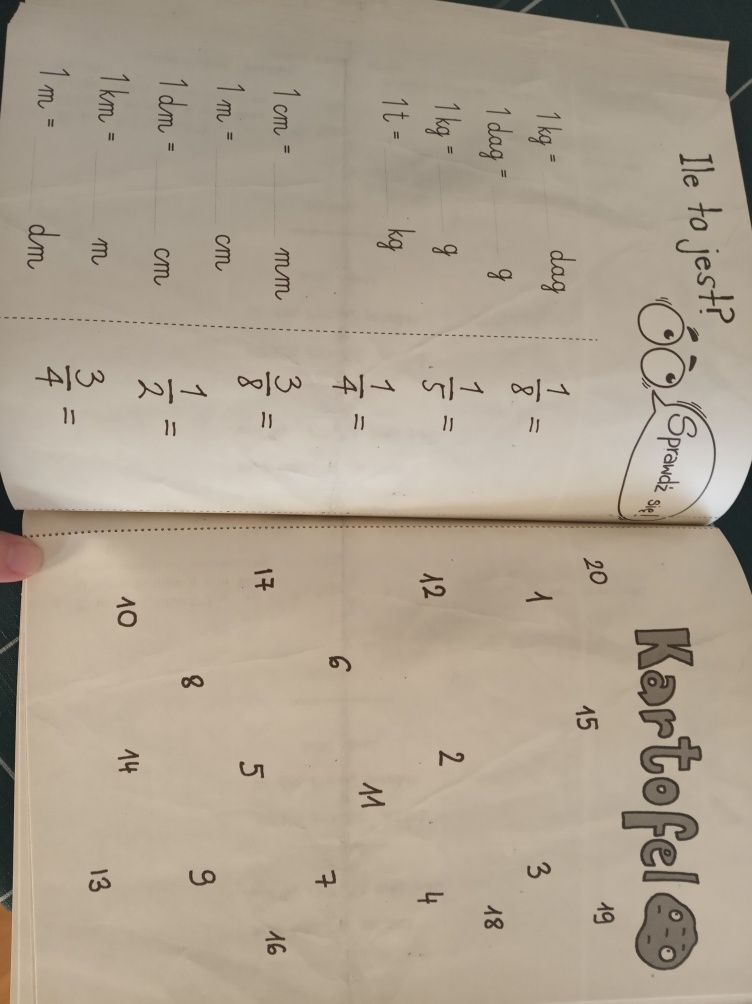 Ile to jest?
Sprawdź się!
1 kg = ........ dag
1 dag = ........ g
1 kg = ........ g
1 t = ........ kg
1 cm = ........ mm
1 m = ........ cm
1 dm = ........ cm
1 km = ........ m
1 m = ........ dm
1/8 =
1/5 =
1/4 =
3/8 =
1/2 =
3/4 =
Kartofel
20 19
15
1 3
18
2
12 4
11
6
7
17 16
5
8 9
10 14
13